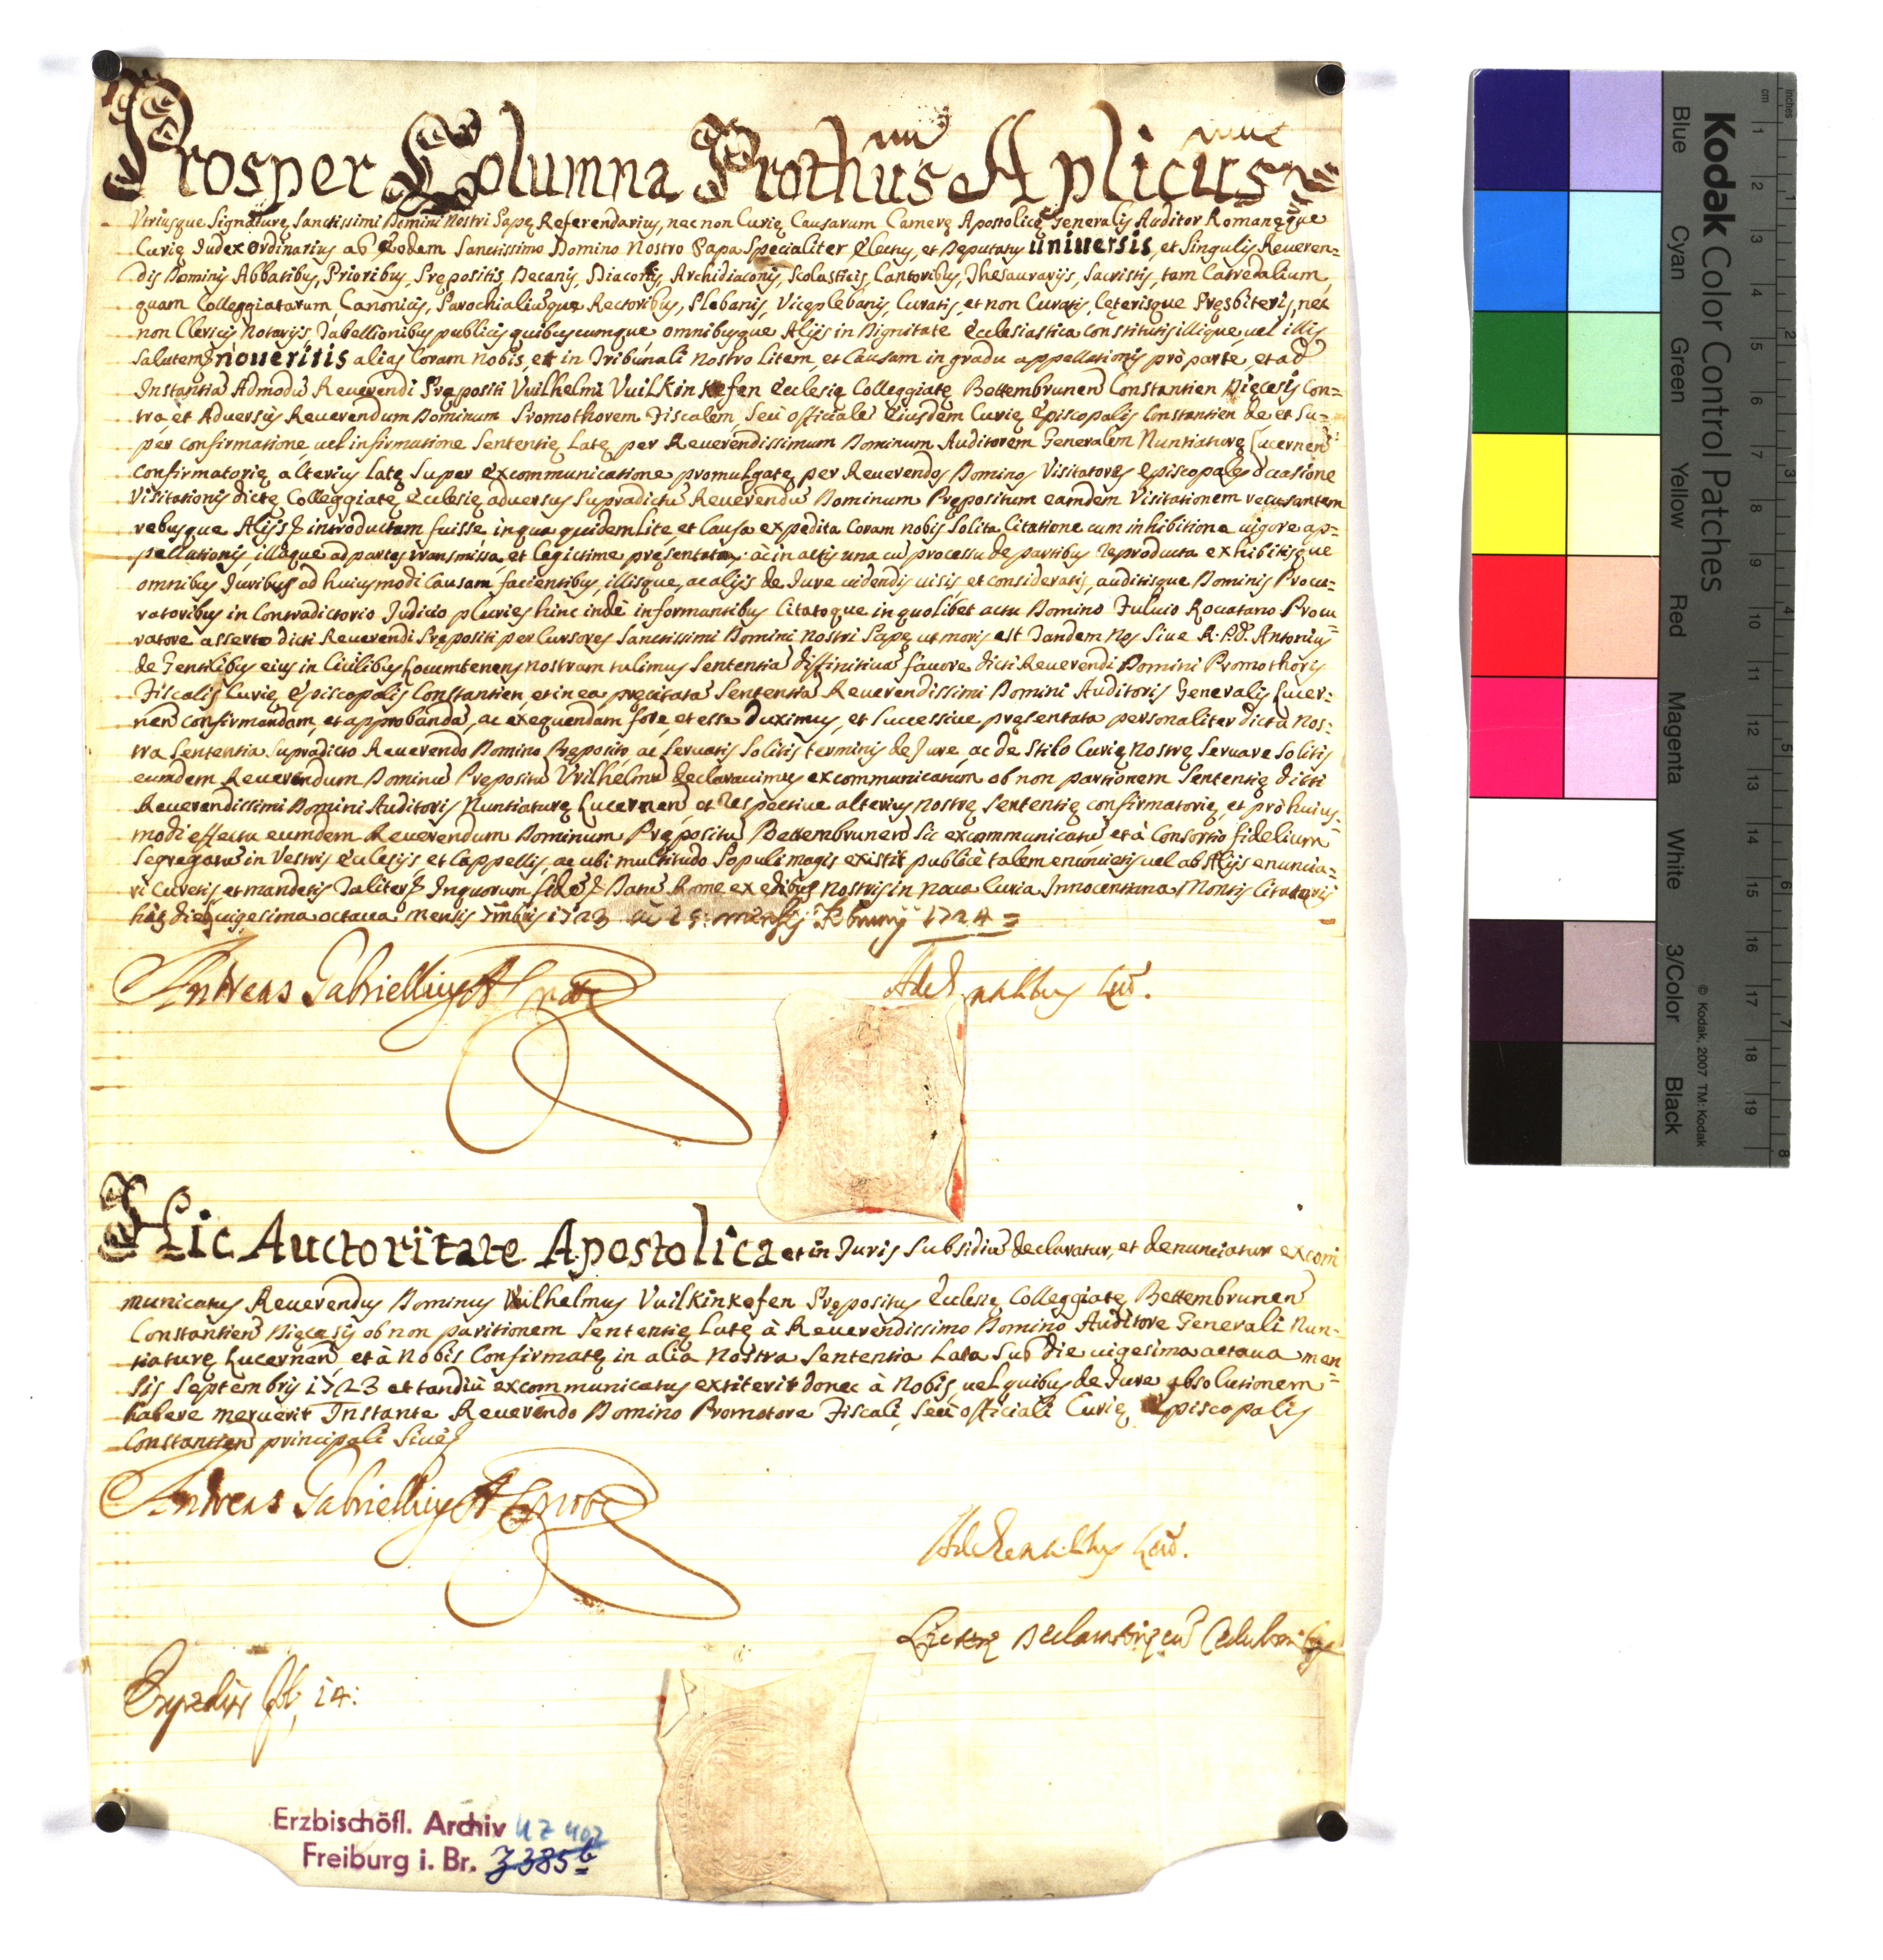 Prosper Columna Prothũs Aplicus
Vtriusque Signaturę Sanctissimi Domini Nostri Papę Referendarius, nec non Curię Causarum Camerę Apostolicę Generalis Auditor Romanęque
Curię Iudex Ordinarius ab Eodem Sanctissimo Domino Nostro Papa Specialiter Electus, et Deputatus universis, et Singulis Reveren=
dis Dominis Abbatibus, Prioribus, Prępositis, Decanis, Diaconis, Archidiaconis, Scolasticis, Cantoribus, Thesaurarijs, Sacristis, tam Catredalium,
quam Colleggiatarum, Canonicis, Parochialiumque Rectoribus, Plebanis, Viceplebanis, Curatis, et non Curatis, Ceterisque Presbiteris, nec
non Clericis Notarijs, Tabellionibus publicis quibuscumque, omnibusque Alijs in Dignitate Ecclesiastica constitutis illique uel illis
Salutem noueritis alias Coram nobis, et in Tribunali nostro Litem, et Causam in gradu appellationis pro parte, et ad
Instantiã Admodũ Reuerendi Prępositi Vuilhelmi Vuilkinkofen Ecclesię Colleggiatę Bettembrunen Constantien Diecesis con=
tra, et Aduersus Reuerendum Dominum Promothorem Fiscalem, Seù officialẽ Eiusdem Curię Episcopalis Constantien de et su=
per confirmatione, uel infirmatione Sententię Latę per Reuerendissimum Dominum Auditorem Generalem Nuntiaturę Lucernen
confirmatorię alterius latę super excommunicatione promulgatę per Reuerendos Dominos Visitatores Episcopales occasione
Visitationis dictę Colleggiatę Ecclesię aduersus Supradictũ Reuerendũ Dominum Prępositum eamdem Visitationem recusantem
rebusque Alijs & introductam fuisse, in qua quidem Lite, et Causa expedita Coram nobis Solita Citatione cum inhibitione uigore ap=
pellationis, illaque ad partes transmissa, et legictime pręsentata, ac in actis una cũ processu de partibus reproducta exhibitisque
omnibus Iuribus ad huiusmodi Causam facientibus, illisque, ac alijs de Iure uidendis uisis, et consideratis, auditisque Dominis Procu=
ratoribus in Contradictorio Iudicio pluries hinc indè informantibus Citatoque in quolibet actu Domino Fuluio Rouatano Procu
ratore asserto dicti Reuerendi Prępositi per Cursores Sanctissimi Domini Nostri Papę ut moris est Tandem Nos Siue R.P.D. Antonius
de Gentilibus eius in Ciuilibus Locumtenens nostram tulimus Sententiã diffinitiuã fauore dicti Reuerendi Domini Promothoris
Fiscalis Curię Episcopalis Constantien, et in ea precitatã Sententiã Reuerendissimi Domini Auditoris Generalis Lucer=
nen confirmandam, et approbandã, ac exequendam fore, et esse Duximus, et Successiue pręsentata personaliter dicta nos=
tra Sententia Supradicto Reuerendo Domino Pręposito, ac Seruatis Solitis terminis de Iure, ac de Stilo Curię nostrę Seruare Solitis
eumdem Reuerendum Dominũ Prepositũ Vvilhelmũ declarauimus excommunicatum ob non paritionem Sententię dicti
Reuerendissimi Domini Auditoris Nuntiaturę Lucernen, et respectiue alterius nostrę Sententię confirmatorię, et prò huius=
modi effectu eumdem Reuerendum Dominum Prępositũ Bettembrunen Sic excommunicatũ et à Consortio fidelium
Segregatũ in Vestris Ecclesijs, et Cappellis, ac ubi multitudo Populi magis existit publicè talem enuncietis, uel ab Alijs enuncia=
ri Curetis, et mandetis Taliter & Inquorum fidẽ & Datũ Romę ex edibus Nostris in Noua Curia Innocentiana Montis Citatorij
hac die uigesima octaua mensis 7mbris 1723 1724=
Andreas Gabriellius
Hic Auctoritate Apostolica et in Iuris Subsidiũ declaratur, et denunciatur excom
municatus Reuerendus Dominus Vuilhelmus Vuilkinkofen Prępositus Ecclesię Colleggiatę Bettembrunen
Constantien Diecesis ob non paritionem Sententię Latę à Reuerendissimo Domino Auditore Generali Nun=
tiaturę Lucernen et à Nobis Confirmatę in alia Nostra Sententia Lata Sub die uigesima octaua men
sis Septembris 1723 et tandiũ excommunicatus extiterit donec à Nobis, uel quibus de Iure absolutionem
habere meruerit Instante Reuerendo Domino Promotore Fiscali, Seù officiali Curię Episcopalis
Constantien principali Siue &
Andreas Gabriellius
14:
Erzbischöfl. Archiv UZ 402
Freiburg i. Br. Z 385 b
Kodak Color Control Patches
Blue Cyan Green Yellow Red Magenta White 3/Color Black
© Kodak, 2007 TM: Kodak
cm 1 2 3 4 5 6 7 8 9 10 11 12 13 14 15 16 17 18 19
inches 1 2 3 4 5 6 7 8